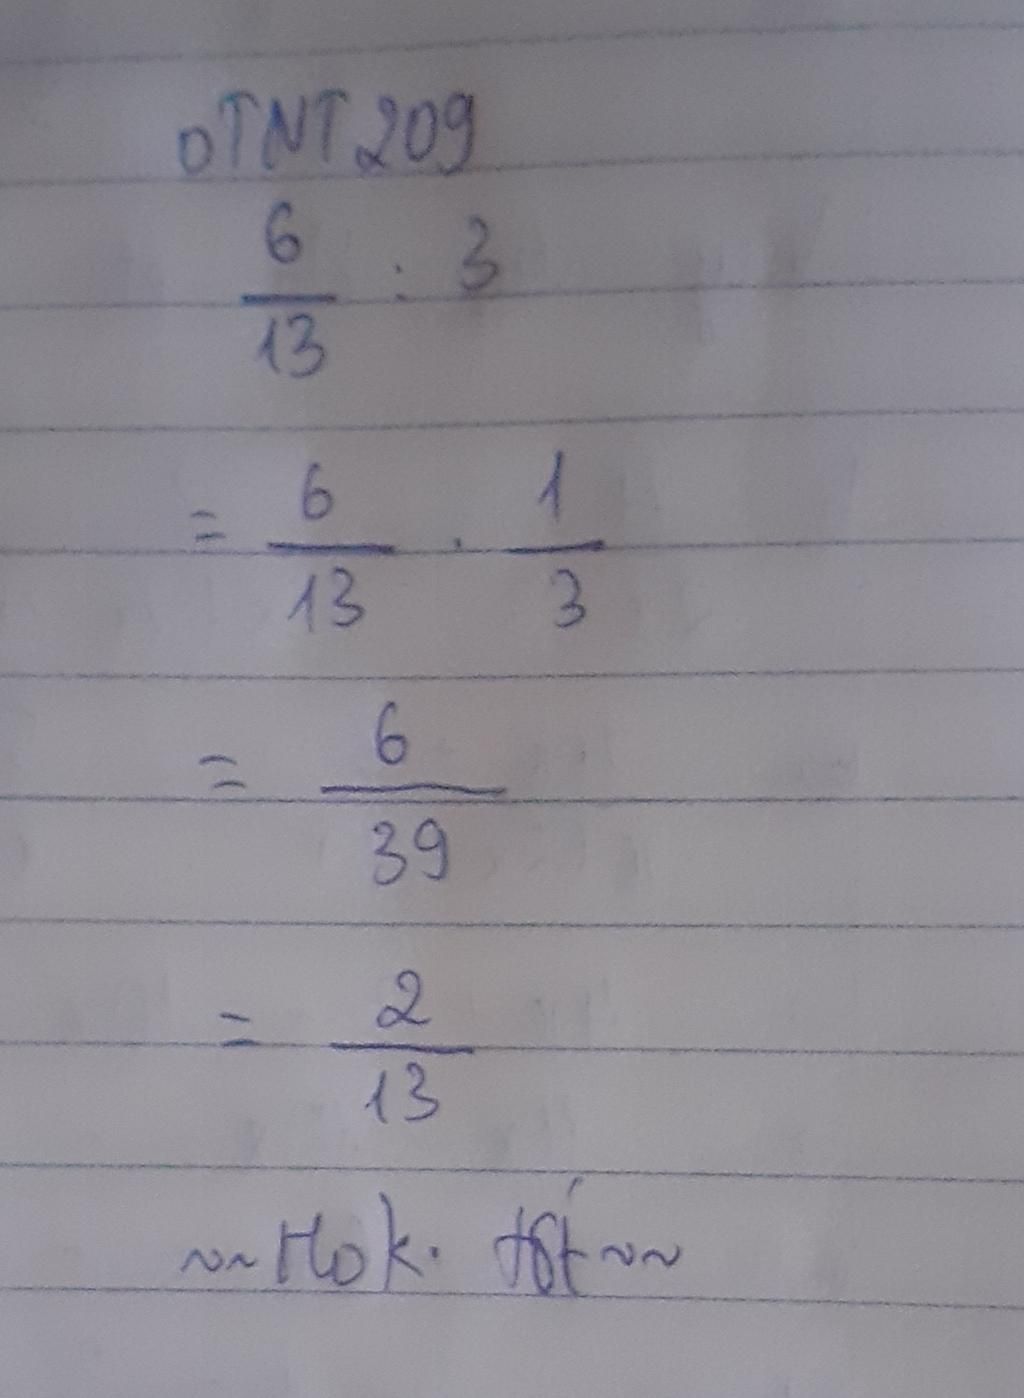 OTNT209
6/13 : 3
= 6/13 . 1/3
= 6/39
= 2/13
~~Hok. tốt~~